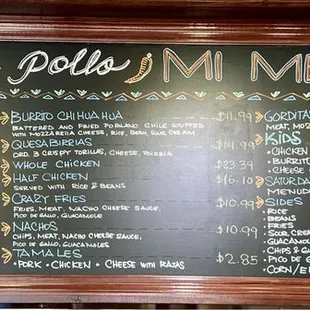 Pollo MI ME
BURRITO CHIHUAHUA $11.99
BATTERED AND FRIED POBLANO CHILE STUFFED
WITH MOZZARELLA CHEESE, RICE, BEAN, SOUR CREAM
QUESABIRRIAS $14.99
ORD. 3 CRISPY TORTILLAS, CHEESE, BIRRIA
WHOLE CHICKEN $23.39
HALF CHICKEN $16.10
SERVED WITH RICE & BEANS
CRAZY FRIES $10.99
FRIES, MEAT, NACHO CHEESE SAUCE,
PICO DE GALLO, GUACAMOLE
NACHOS $10.99
CHIPS, MEAT, NACHO CHEESE SAUCE,
PICO DE GALLO, GUACAMOLES
TAMALES $2.85
• PORK • CHICKEN • CHEESE WITH RAJAS
GORDITA
MEAT, MOZ
KIDS
• CHICKEN
• BURRITO
• CHEESE
SATURDA
MENUD
SIDES
RICE
BEANS
FRIES
SOUR CREA
GUACAMOL
CHIPS & G
PICO DE G
CORN/E